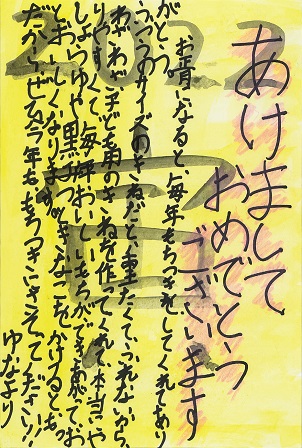 2022
寅
あけまして
おめでとう
ございます
お正月になると、毎年もちつきをしてくれてあり
がとう。
ふつうのサイズのきねだと、重たくてつかれないから、
わざわざ子ども用のきねを作ってくれて本当にや
りやすくて、毎年おいしいもちができあがって、お
しょうゆや黒みつ、きなこをかけるともっ
とおいしくなります。
だからぜひ今年ももちつきにきてください!!
ゆなより